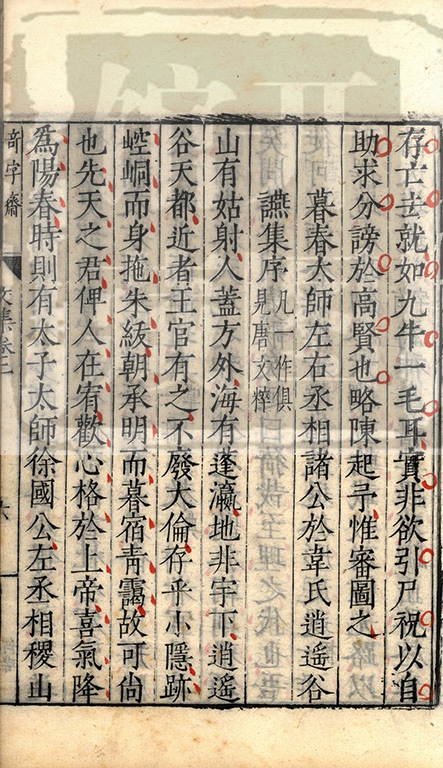 存亡去就如九牛一毛耳實非欲引尸祝以自
助求分謗於高賢也略陳起予惟審圖之
暮春太師左右丞相諸公於韋氏逍遙谷
讌集序凡一作俱見唐文粹
山有姑射人蓋方外海有蓬瀛地非宇下逍遙
谷天都近者王官有之不廢大倫存乎小隱跡
崆峒而身拖朱紱朝承明而暮宿青靄故可尚
也先天之君俾人在宥歡心格於上帝喜氣降
為陽春時則有太子太師徐國公左丞相稷山
奇字齋
文集卷三
六